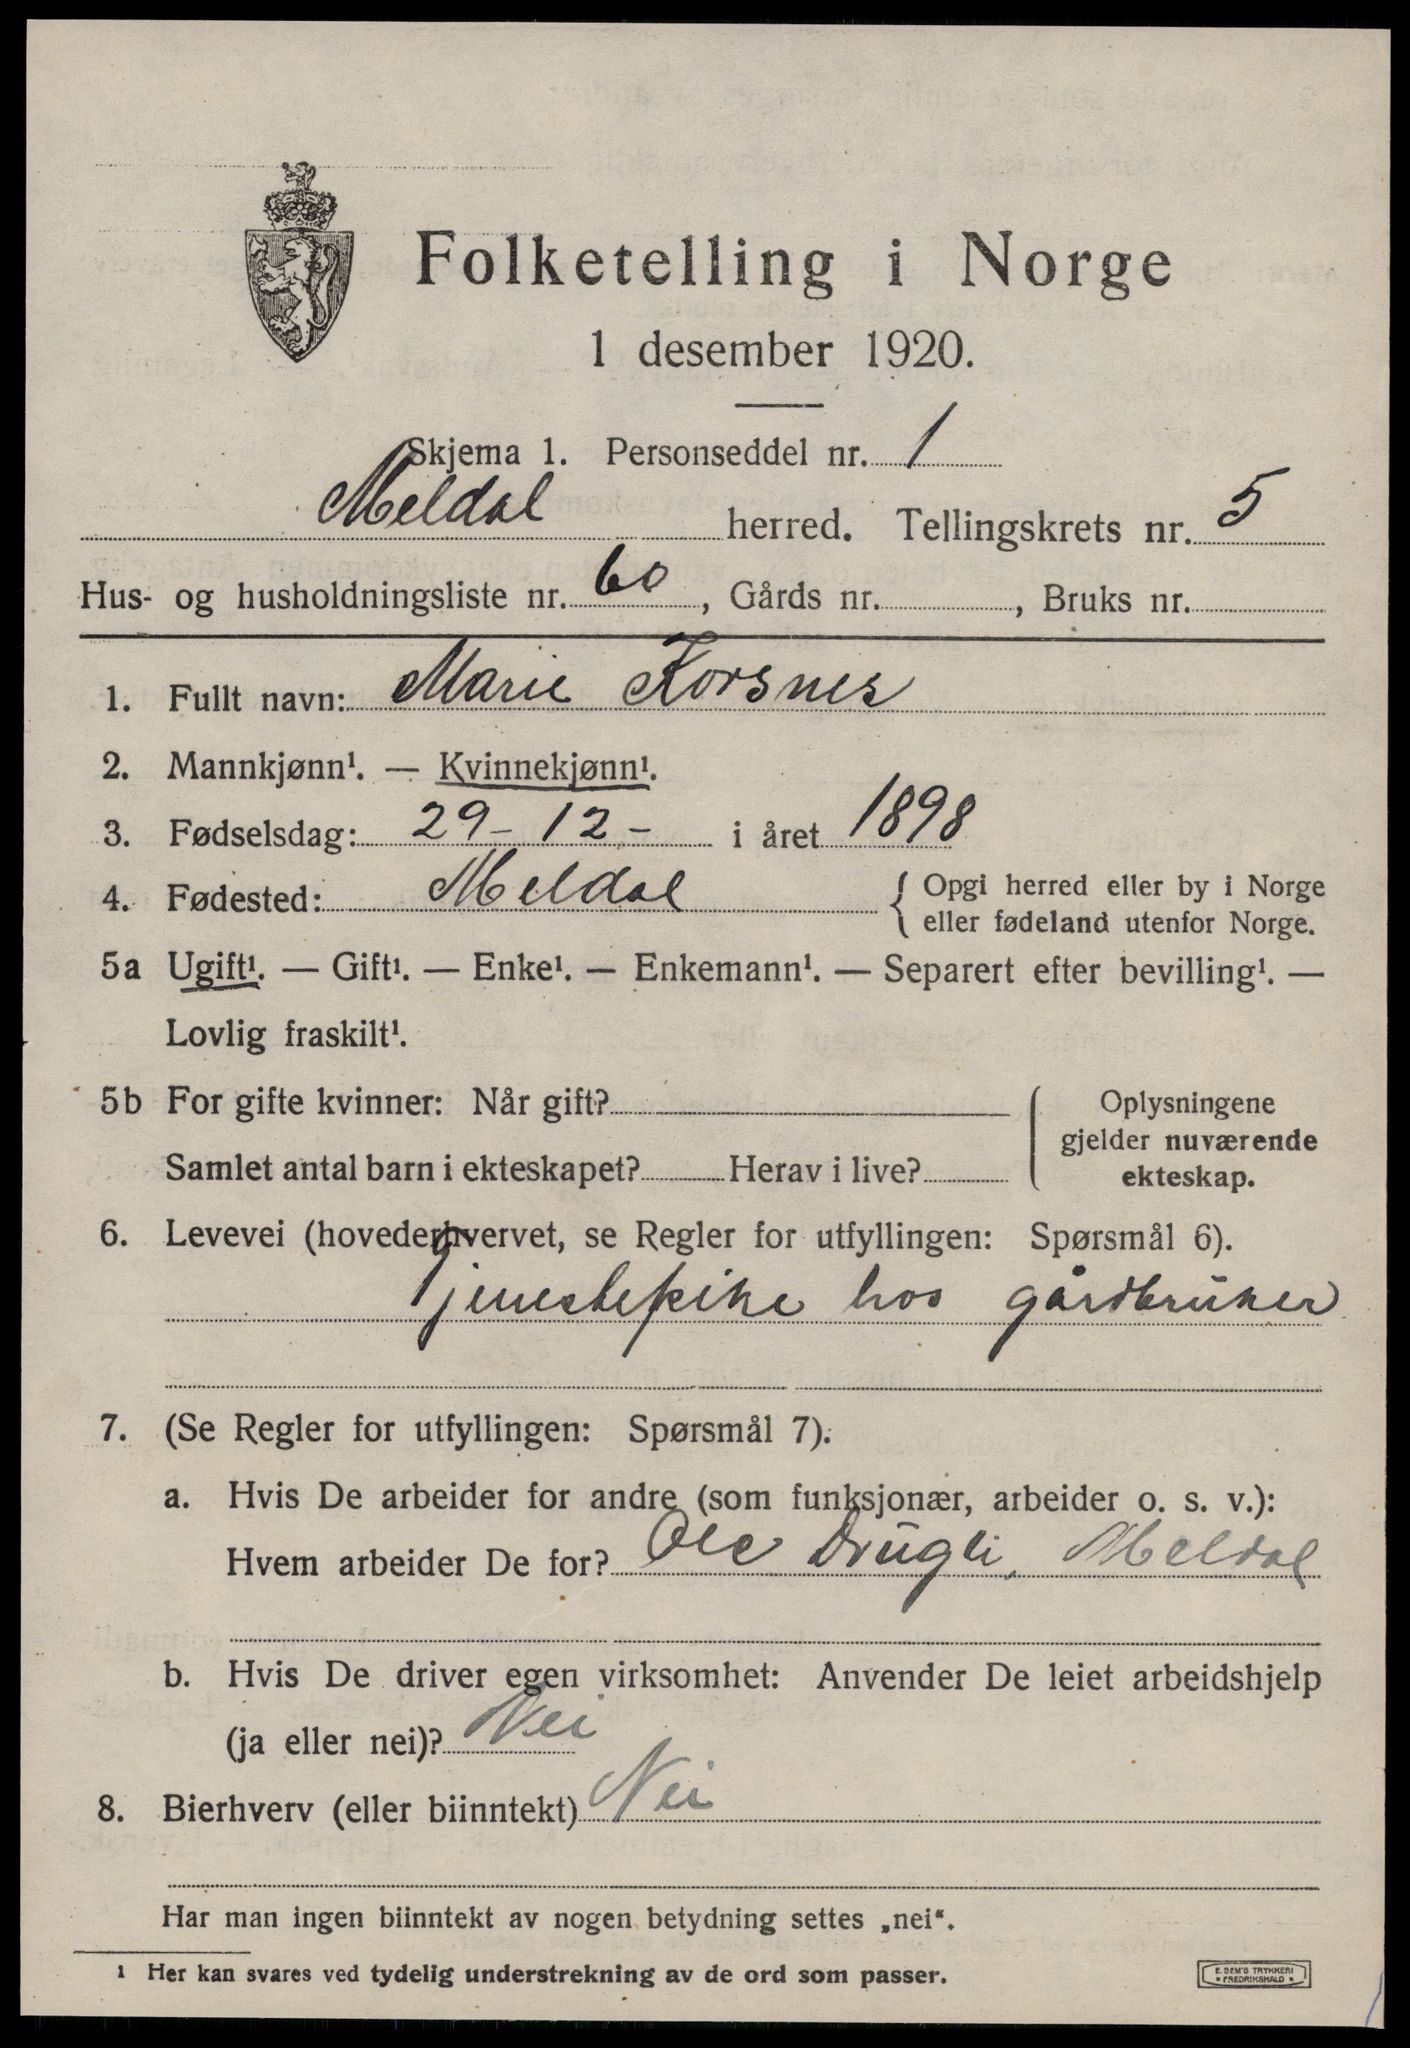 Folketelling i Norge
1 desember 1920.
Skjema 1. Personseddel nr. 1
Meldal herred. Tellingskrets nr. 5
Hus- og husholdningsliste nr. 60, Gårds nr. , Bruks nr.
1. Fullt navn: Marie Korsnes
2. Mannkjønn¹. — Kvinnekjønn¹.
3. Fødselsdag: 29 - 12 - i året 1898
4. Fødested: Meldal { Opgi herred eller by i Norge
eller fødeland utenfor Norge.
5a Ugift¹. — Gift¹. — Enke¹. — Enkemann¹. — Separert efter bevilling¹. —
Lovlig fraskilt¹.
5b For gifte kvinner: Når gift?
Samlet antal barn i ekteskapet? Herav i live?
Oplysningene
gjelder nuværende
ekteskap.
6. Levevei (hovederhvervet, se Regler for utfyllingen: Spørsmål 6).
Tjenestepike hos gårdbruker
7. (Se Regler for utfyllingen: Spørsmål 7).
a. Hvis De arbeider for andre (som funksjonær, arbeider o. s. v.):
Hvem arbeider De for? Ole Drugli, Meldal
b. Hvis De driver egen virksomhet: Anvender De leiet arbeidshjelp
(ja eller nei)? Nei
8. Bierhverv (eller biinntekt) Nei
Har man ingen biinntekt av nogen betydning settes „nei“.
¹ Her kan svares ved tydelig understrekning av de ord som passer.
E. SEM'S TRYKKERI
* FREDRIKSHALD *